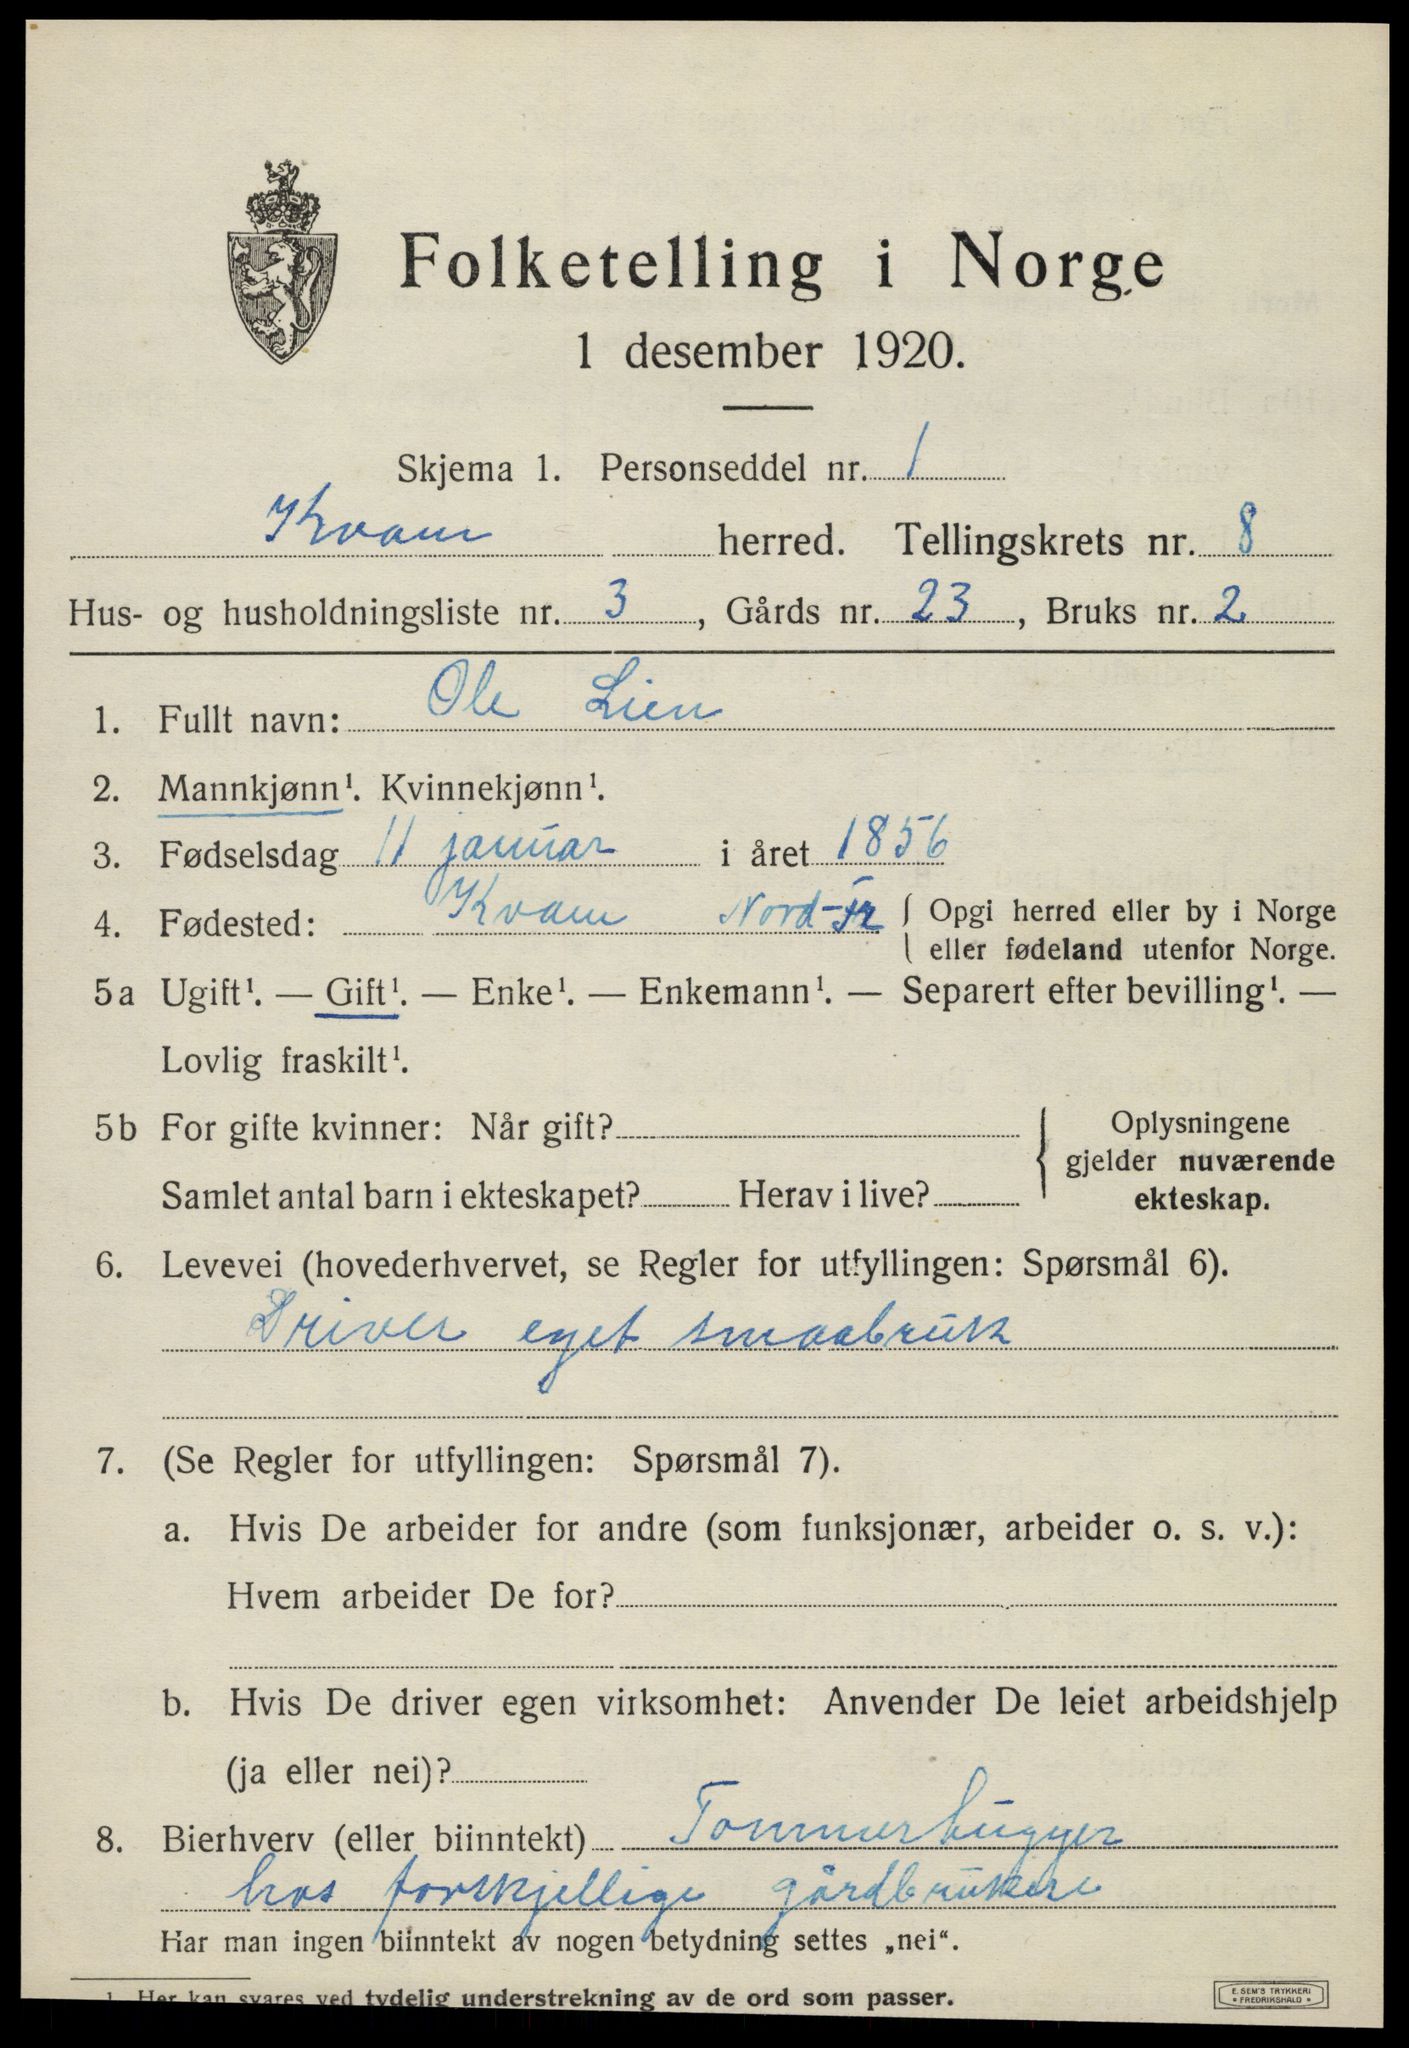 Folketelling i Norge
1 desember 1920.
Skjema 1. Personseddel nr. 1
Kvam herred. Tellingskrets nr. 8
Hus- og husholdningsliste nr. 3, Gårds nr. 23, Bruks nr. 2
1. Fullt navn: Ole Lien
2. Mannkjønn¹. Kvinnekjønn¹.
3. Fødselsdag 11 januar i året 1856
4. Fødested: Kvam Nord-Tr { Opgi herred eller by i Norge
eller fødeland utenfor Norge.
5a Ugift¹. — Gift¹. — Enke¹. — Enkemann¹. — Separert efter bevilling¹. —
Lovlig fraskilt¹.
5b For gifte kvinner: Når gift?
Samlet antal barn i ekteskapet? Herav i live?
{ Oplysningene
gjelder nuværende
ekteskap.
6. Levevei (hovederhvervet, se Regler for utfyllingen: Spørsmål 6).
Driver eget smaabruk
7. (Se Regler for utfyllingen: Spørsmål 7).
a. Hvis De arbeider for andre (som funksjonær, arbeider o. s. v.):
Hvem arbeider De for?
b. Hvis De driver egen virksomhet: Anvender De leiet arbeidshjelp
(ja eller nei)?
8. Bierhverv (eller biinntekt) Tømmerhugger
hos forskjellige gårdbrukere
Har man ingen biinntekt av nogen betydning settes „nei“.
1. Her kan svares ved tydelig understrekning av de ord som passer.
E. SEM'S TRYKKERI
• FREDRIKSHALD •